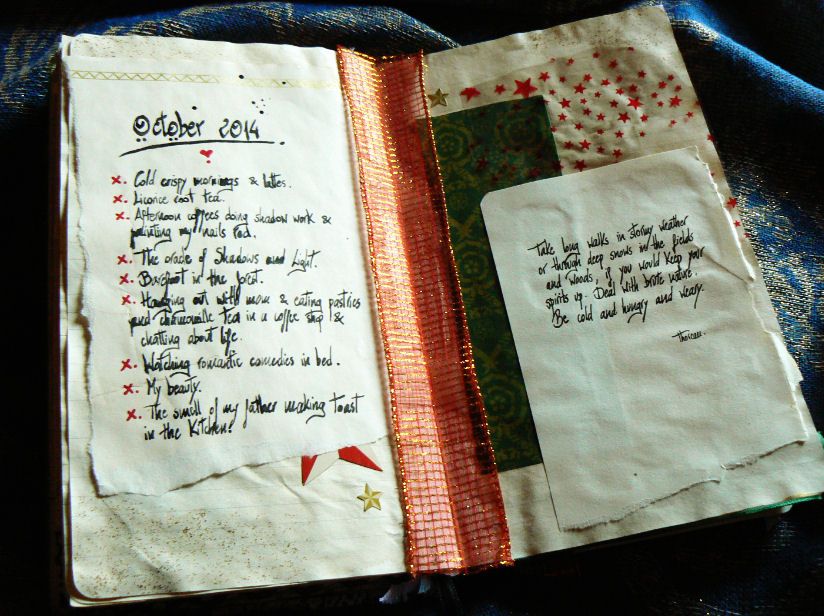 October 2014
x. Cold crispy mornings & lattes.
x. Licorice root tea.
x. Afternoon coffees doing shadow work &
painting my nails red.
x. The oracle of Shadows and Light.
x. Barefoot in the forest.
x. Hanging out with mom & eating pastries
and chamomille tea in a coffee shop &
chatting about life.
x. Watching romantic comedies in bed.
x. My beauty.
x. The smell of my father making toast
in the kitchen!
Take long walks in stormy weather
or through deep snows in the fields
and woods, if you would keep your
spirits up. Deal with brute nature.
Be cold and hungry and weary.
Thoreau.